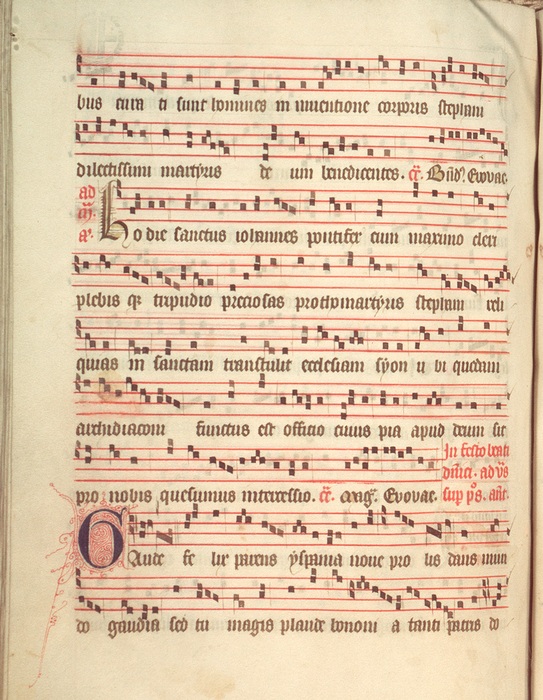 bus cura ti sunt homines in inuentione corporis stephani
dilectissimi martyris de um benedicentes. cr. Bñd'. Euouae.
ad
ho die sanctus iohannes pontifex cum maximo cleri
a'.
plebis qz tripudio preciosas prothomartyris stephani reli
quias in sanctam transtulit ecclesiam syon u bi quedam
archidiaconi functus est officio cuius pia apud deum sit
In festo beati
dñici. ad vs
pro nobis quesumus intercessio. cr. Mag'. Euouae. sup ps. añt.
Gaude fe lix parens yspania noue pro lis dans mun
do gaudia sed tu magis plaude bononi a tanti patris do